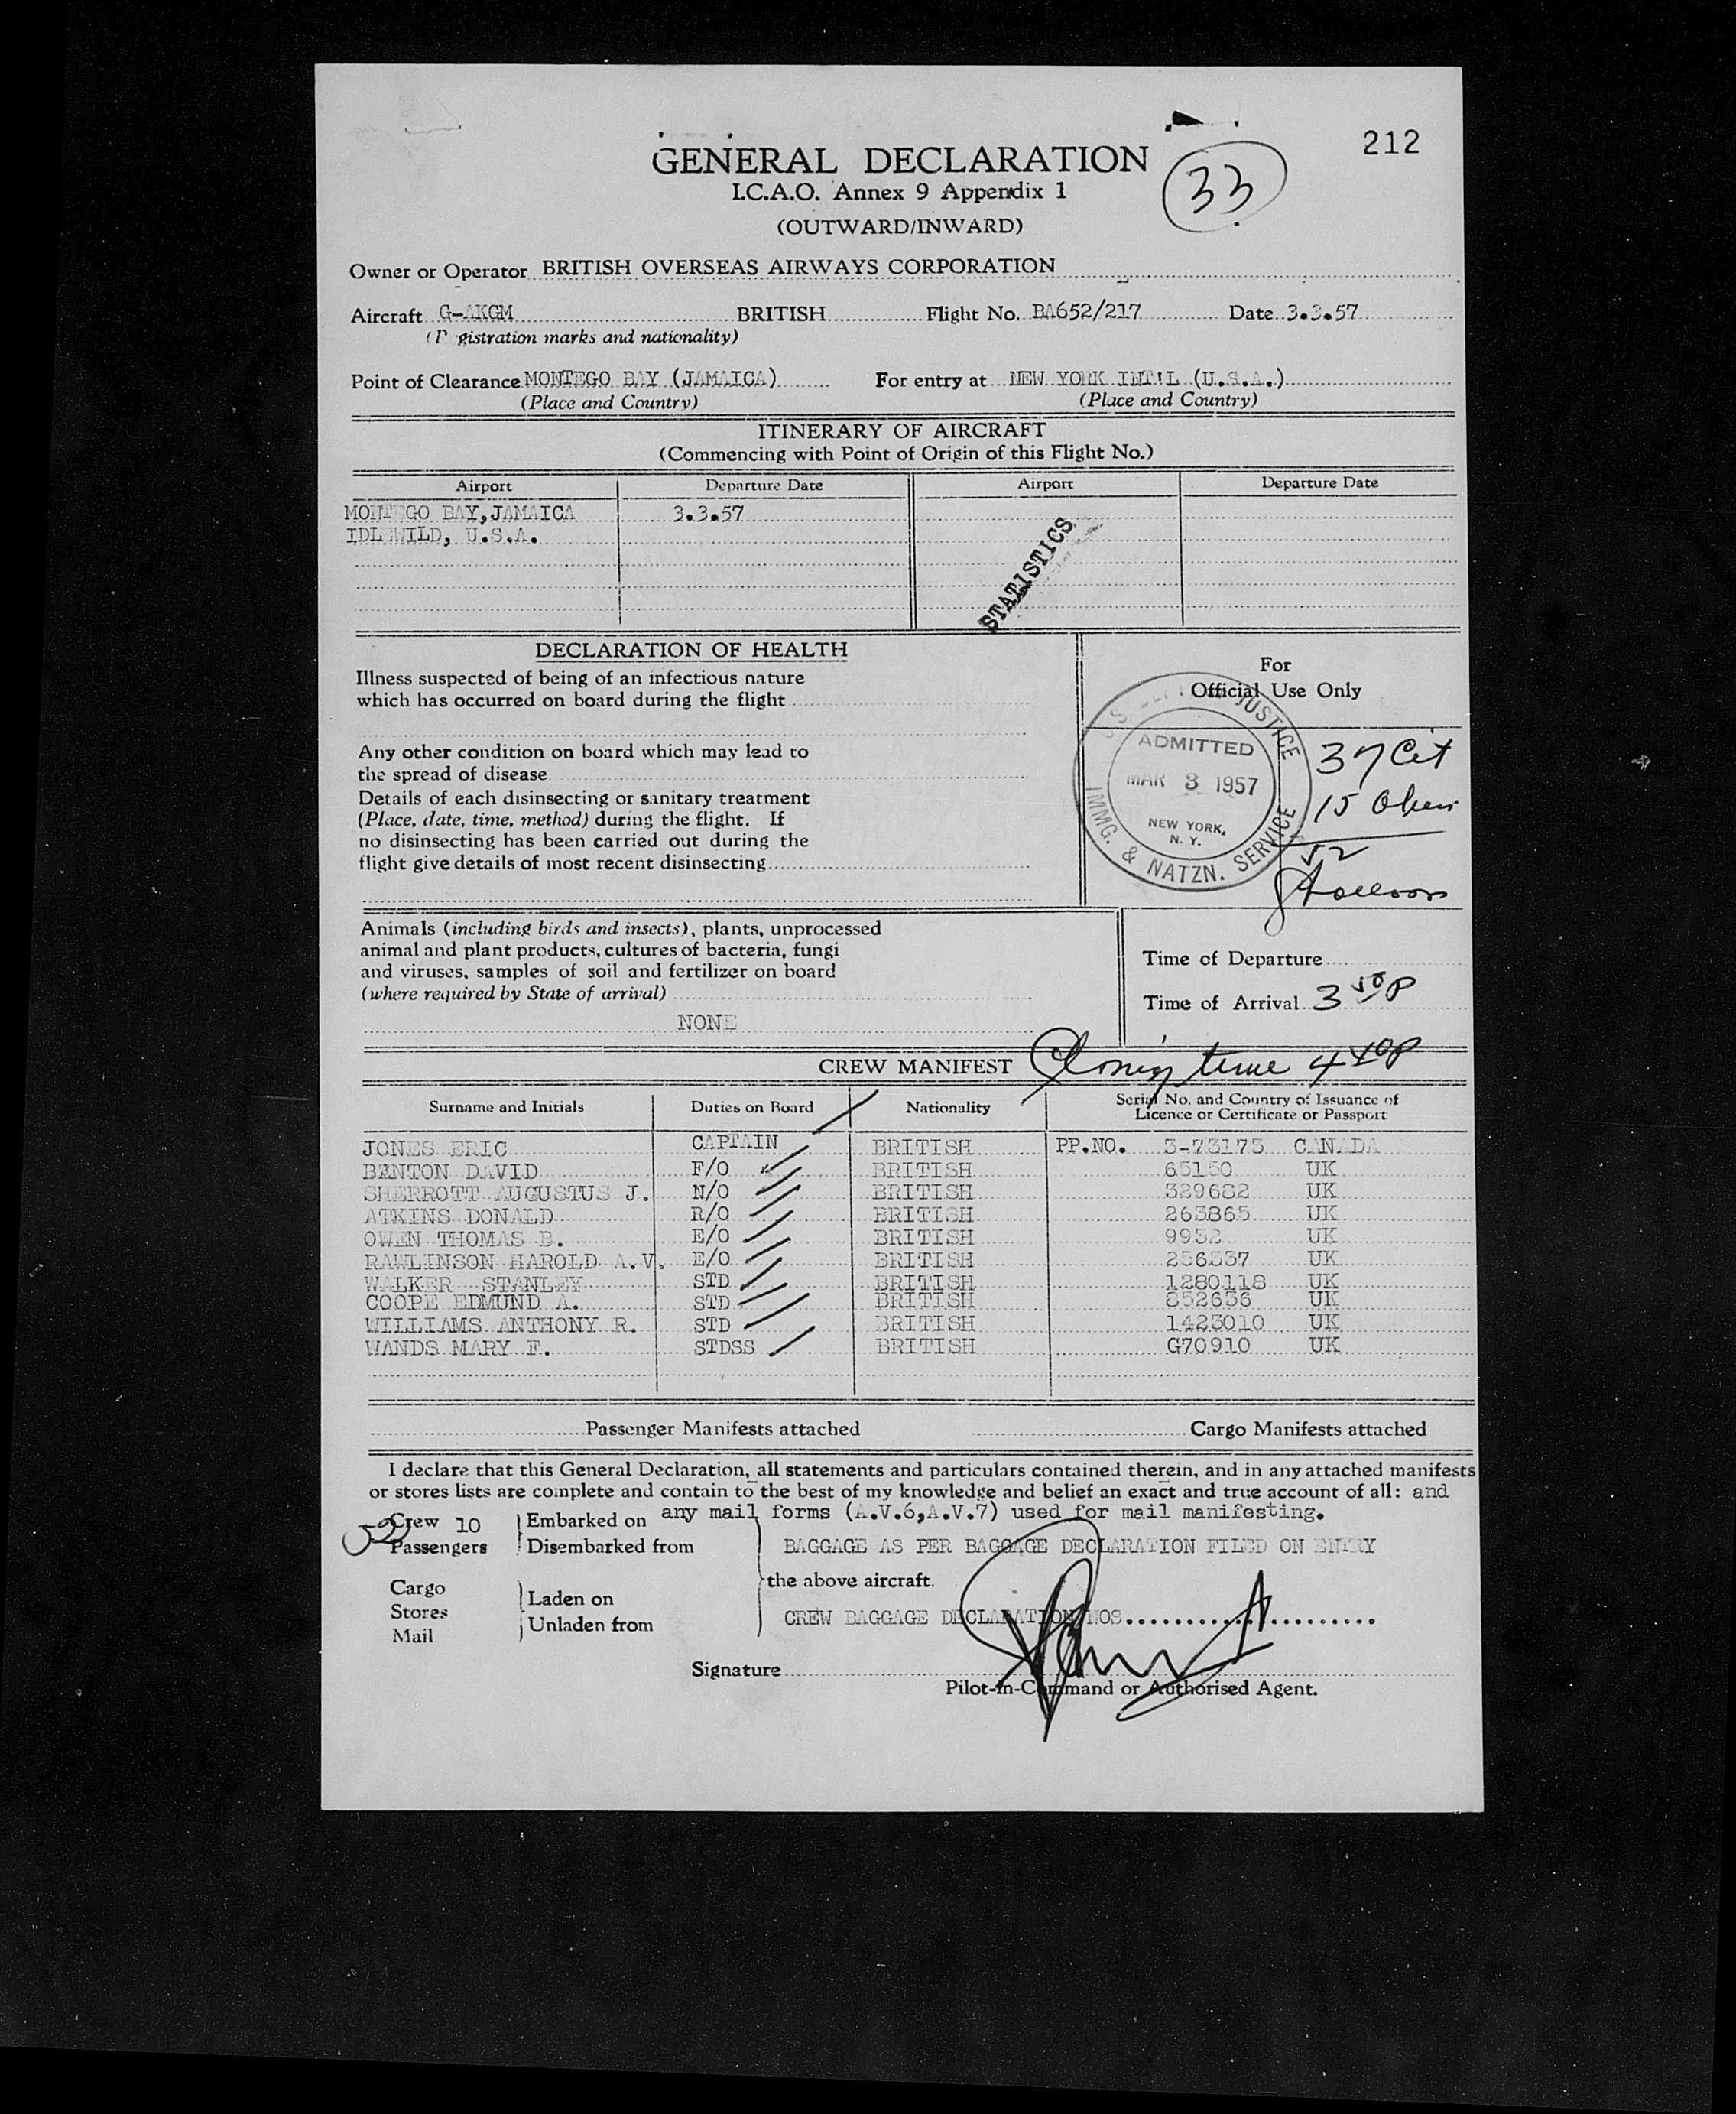 212
GENERAL DECLARATION
33
I.C.A.O. Annex 9 Appendix 1
(OUTWARD/INWARD)
Owner or Operator BRITISH OVERSEAS AIRWAYS CORPORATION
Aircraft G-AKGM BRITISH Flight No. BA652/217 Date 3.3.57
(Registration marks and nationality)
Point of Clearance MONTEGO BAY (JAMAICA) For entry at NEW YORK INT'L (U.S.A.)
(Place and Country) (Place and Country)
ITINERARY OF AIRCRAFT
(Commencing with Point of Origin of this Flight No.)
Airport Departure Date Airport Departure Date
MONTEGO BAY, JAMAICA 3.3.57
IDLEWILD, U.S.A.
STATISTICS
DECLARATION OF HEALTH
Illness suspected of being of an infectious nature
which has occurred on board during the flight
Any other condition on board which may lead to
the spread of disease
Details of each disinsecting or sanitary treatment
(Place, date, time, method) during the flight. If
no disinsecting has been carried out during the
flight give details of most recent disinsecting
For
Official Use Only
JUSTICE
ADMITTED
MAR 3 1957
NEW YORK,
N. Y.
IMMG. & NATZN. SERVICE
37 Cit
15
52
Animals (including birds and insects), plants, unprocessed
animal and plant products, cultures of bacteria, fungi
and viruses, samples of soil and fertilizer on board
(where required by State of arrival)
NONE
Time of Departure
Time of Arrival 3 50 P
CREW MANIFEST Closing time 4 40 P
Surname and Initials Duties on Board Nationality Serial No. and Country of Issuance of
Licence or Certificate or Passport
JONES ERIC CAPTAIN BRITISH PP.NO. 3-73173 CANADA
BANTON DAVID F/O BRITISH 65150 UK
SHERROTT AUGUSTUS J. N/O BRITISH 329682 UK
ATKINS DONALD R/O BRITISH 263865 UK
OWEN THOMAS B. E/O BRITISH 9932 UK
RAWLINSON HAROLD A.V. E/O BRITISH 256337 UK
WALKER STANLEY STD BRITISH 1280118 UK
COOPE EDMUND A. STD BRITISH 852636 UK
WILLIAMS ANTHONY R. STD BRITISH 1423010 UK
WANDS MARY F. STDSS BRITISH G70910 UK
Passenger Manifests attached Cargo Manifests attached
I declare that this General Declaration, all statements and particulars contained therein, and in any attached manifests
or stores lists are complete and contain to the best of my knowledge and belief an exact and true account of all: and
any mail forms (A.V.6,A.V.7) used for mail manifesting.
Crew 10 Embarked on
52 Passengers Disembarked from BAGGAGE AS PER BAGGAGE DECLARATION FILED ON ENTRY
the above aircraft.
Cargo
Stores Laden on
Mail Unladen from CREW BAGGAGE DECLARATION NOS.
Signature
Pilot-in-Command or Authorised Agent.